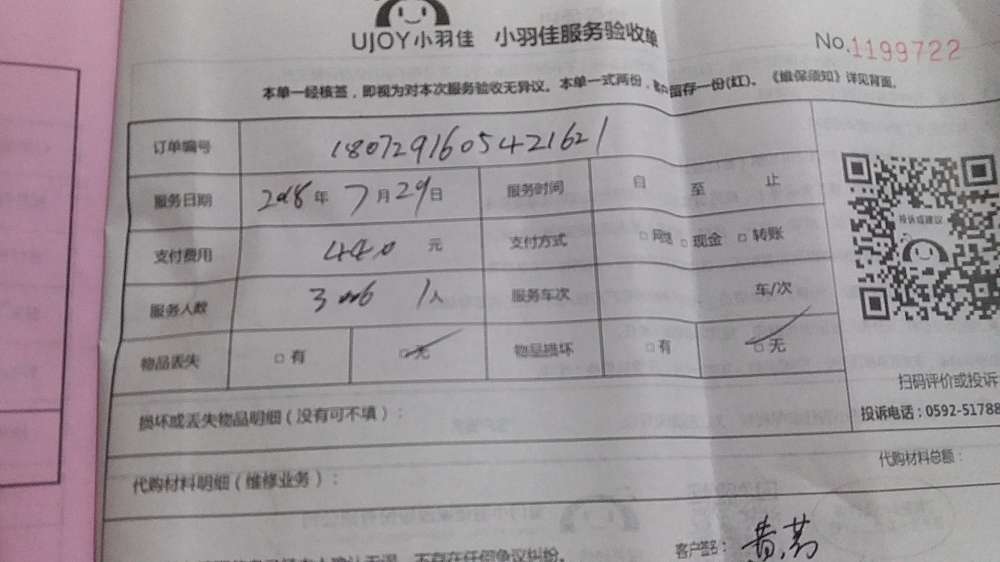 UJOY小羽佳 小羽佳服务验收单
No.1199722
本单一经核签，即视为对本次服务验收无异议。本单一式两份，客户留存一份(红)。《维保须知》详见背面。
订单编号 1807291605421621
服务日期 2018年 7月29日 服务时间 自 至 止
支付费用 440 元 支付方式 □网络 □现金 □转账
服务人数 1人 服务车次 车/次
物品丢失 □有 □无 物品损坏 □有 □无
投诉或建议
扫码评价或投诉
投诉电话：0592-51788
损坏或丢失物品明细（没有可不填）：
代购材料明细（维修业务）：
代购材料总额：
客户签名：
不存在任何争议纠纷。